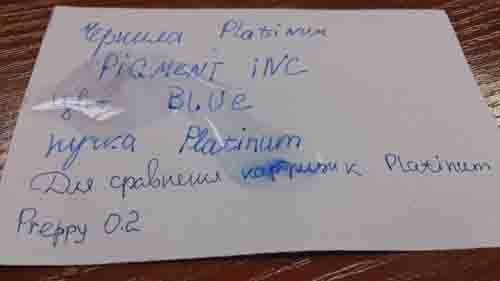 Чернила Platinum
PiGMENT iNC
цвет BLUe
ручка Platinum
Для сравнения картридж Platinum
Preppy 0.2